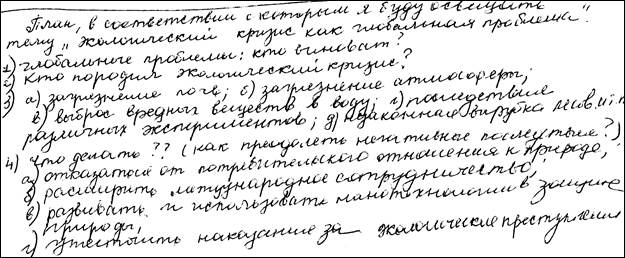 План, в соответствии с которым я буду освещать
тему „Экологический кризис как глобальная проблема".
1) глобальные проблемы: кто виноват?
2) Кто породил экологический кризис?
3) а) загрязнение почв; б) загрязнение атмосферы;
в) выброс вредных веществ в воду; г) последствия
различных экспериментов; д) незаконная вырубка лесов. и т.п
4) Что делать?? (как преодолеть негативные последствия?)
а) отказаться от потребительского отношения к природе;
б) расширить международное сотрудничество;
в) развивать и использовать нанотехнологии в защите
природы;
г) ужесточить наказание за экологические преступления